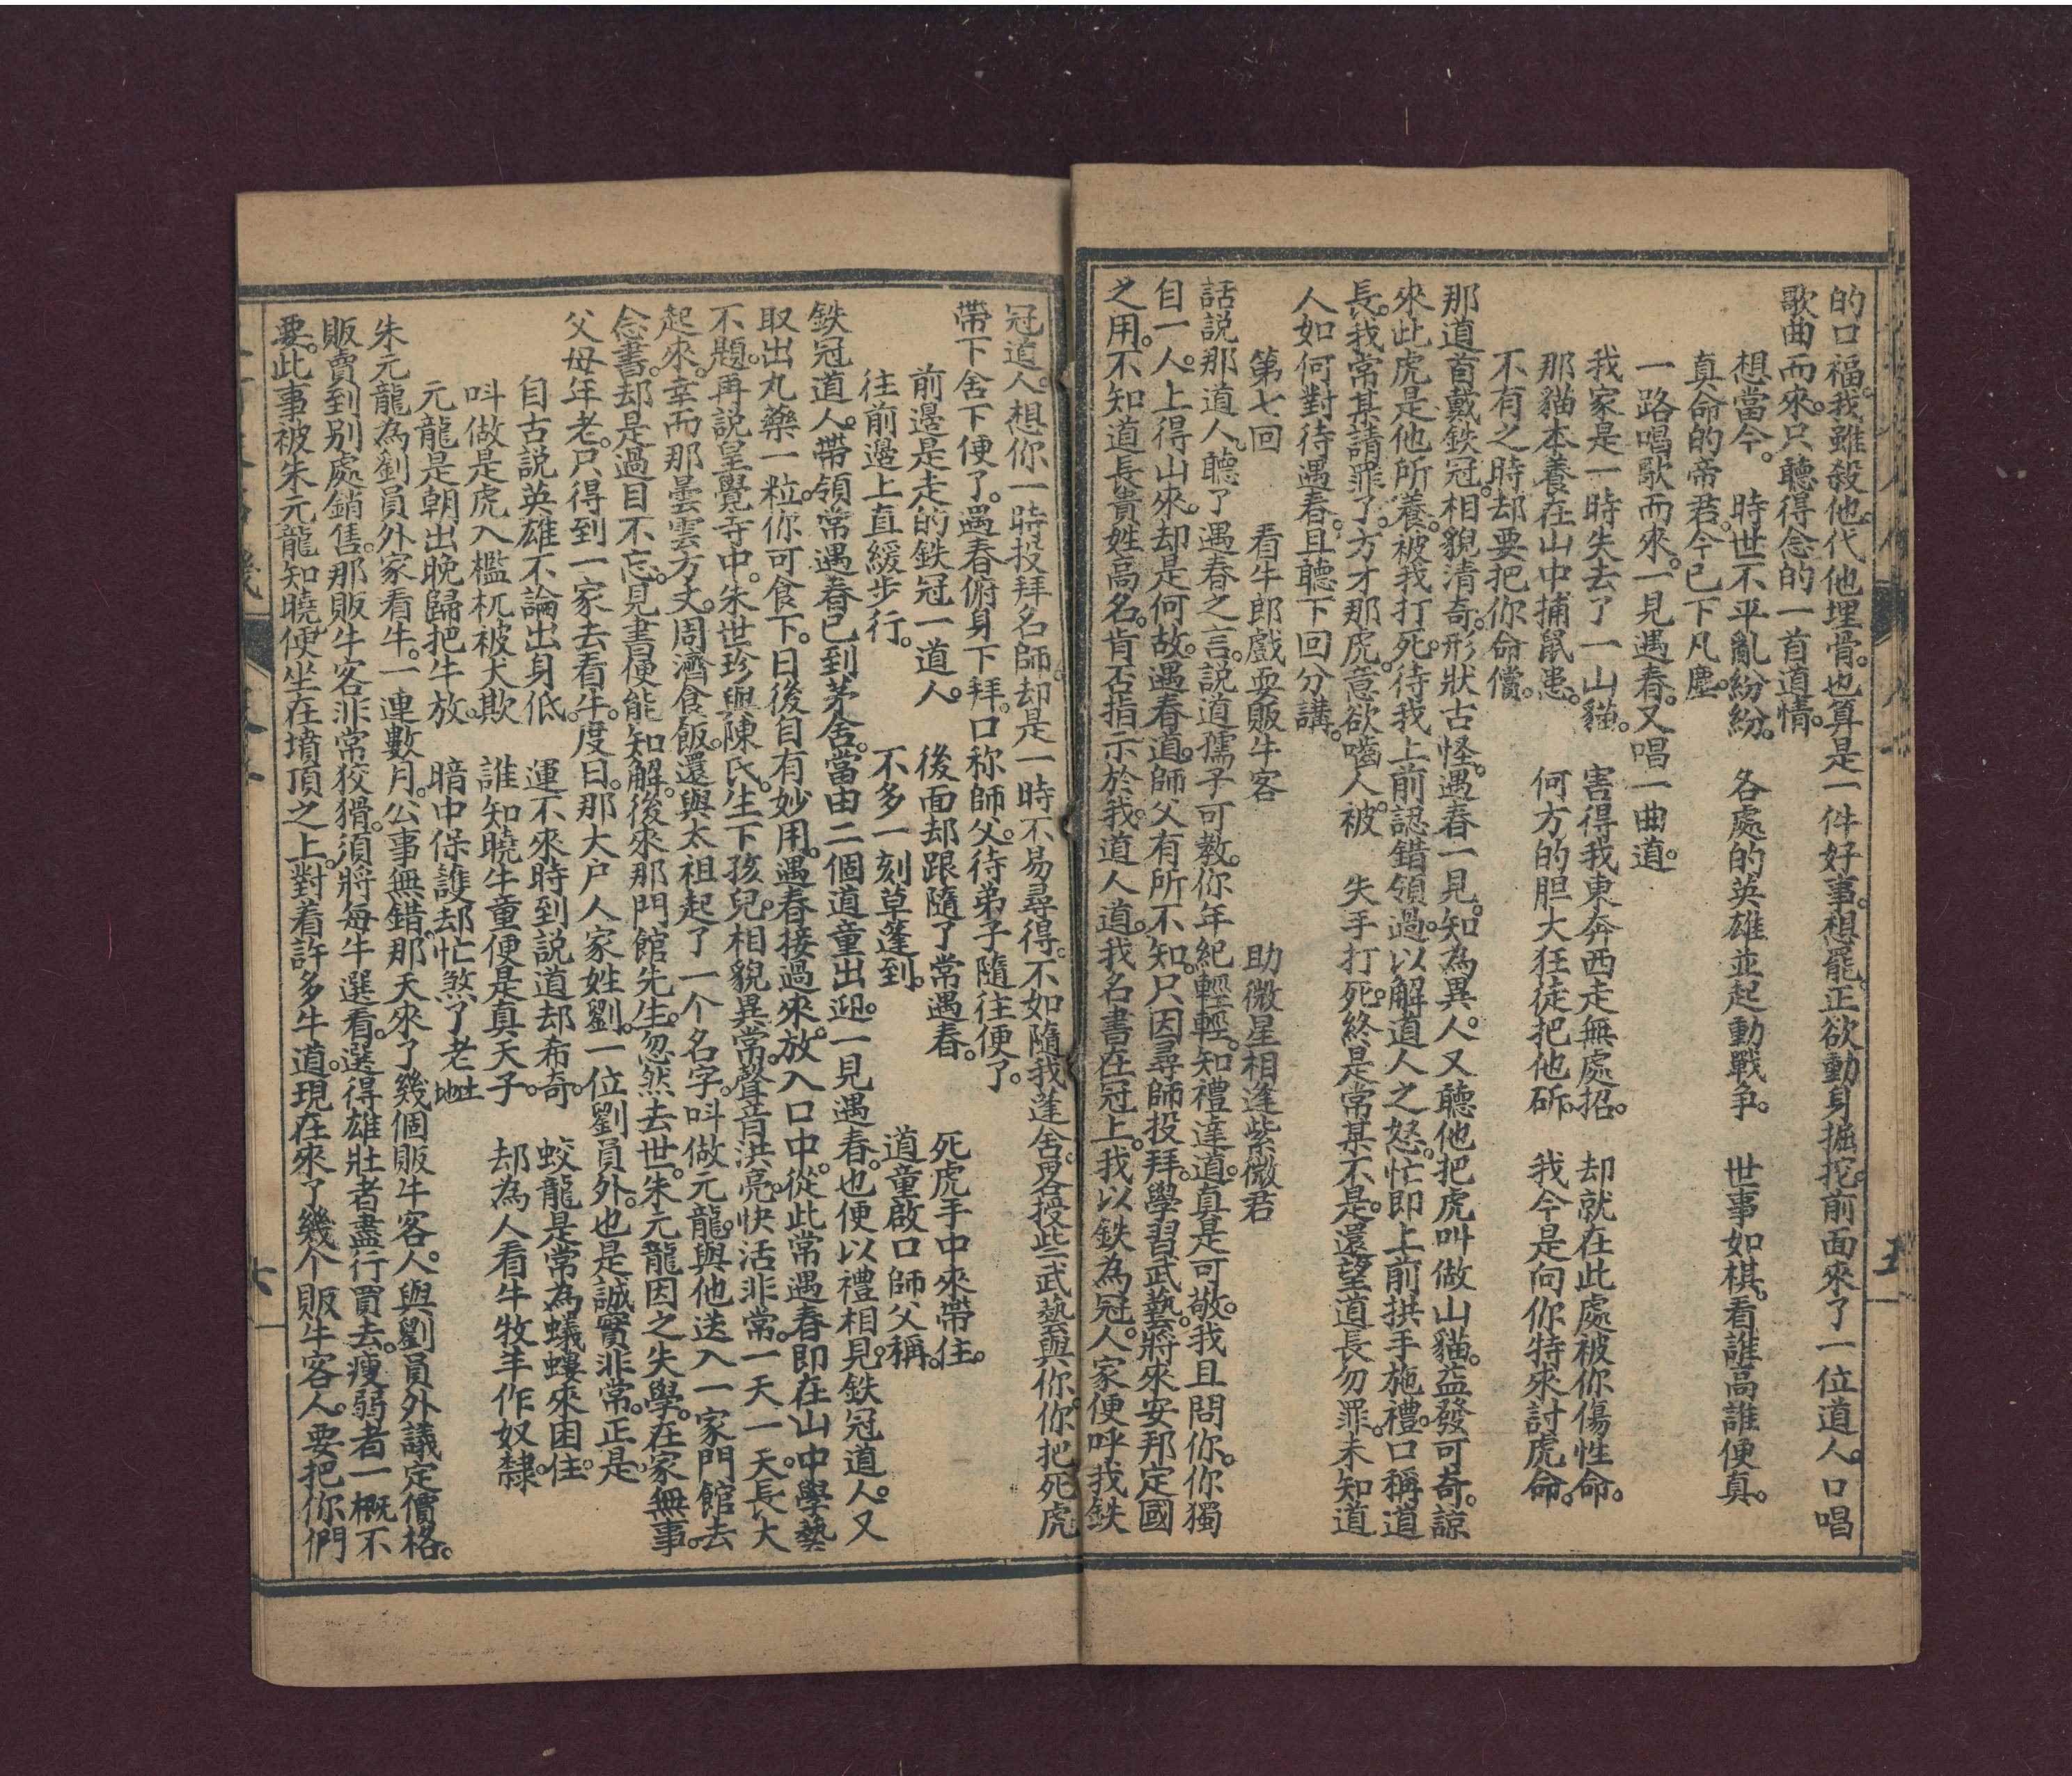 的口福。我雖殺他。代他埋骨。也算是一件好事。想罷。正欲動身掘挖。前面來了一位道人。口唱
歌曲而來。只聽得念的一首道情。
想當今。　時世不平亂紛紛。　各處的英雄並起動戰爭。　世事如棋。看誰高誰便真。
真命的帝君。今已下凡塵。
一路唱歌而來。一見遇春。又唱一曲道。
我家是一時失去了一山貓。　害得我東奔西走無處招。　却就在此處被你傷性命。
那貓本養在山中捕鼠患。　何方的胆大狂徒把他斫。　我今是向你特來討虎命。
不有之時却要把你命償。
那道首戴鉄冠。相貌清奇。形狀古怪。遇春一見。知為異人。又聽他把虎叫做山貓。益發可奇。諒
來此虎是他所養。被我打死。待我上前認錯領過。以解道人之怒。忙即上前拱手施禮。口稱道
長。我常某請罪了。方才那虎。意欲噬人。被　失手打死。終是常某不是。還望道長勿罪。未知道
人如何對待遇春。且聽下回分講。
第七回　看牛郎戲耍販牛客　助微星相逢紫微君
話說那道人。聽了遇春之言。說道孺子可教。你年紀輕輕。知禮達道。真是可敬。我且問你。你獨
自一人。上得山來。却是何故。遇春道。師父有所不知。只因尋師投拜。學習武藝。將來安邦定國
之用。不知道長貴姓高名。肯否指示於我。道人道。我名書在冠上。我以鉄為冠。人家便呼我鉄
冠道人。想你一時投拜名師。却是一時不易尋得。不如隨我蓬舍。畧授些武藝與你。你把死虎
帶下舍下便了。遇春俯身下拜。口称師父。待弟子隨往便了。
前邊是走的鉄冠一道人。　後面却跟隨了常遇春。　死虎手中來帶住。
往前邊上直緩步行。　不多一刻草蓬到。　道童啟口師父稱。
鉄冠道人。帶領常遇春已到茅舍。當由二個道童出迎。一見遇春。也便以禮相見。鉄冠道人。又
取出丸藥一粒。你可食下。日後自有妙用。遇春接過來。放入口中。從此常遇春即在山中學藝
不題。再說皇覺寺中。朱世珍與陳氏。生下孩兒。相貌異常。聲音洪亮。快活非常。一天一天。長大
起來。幸而那曇雲方丈。周濟食飯。還與太祖起了一个名字。叫做元龍。與他送入一家門館去
念書。却是過目不忘。見書便能知解。後來那門館先生。忽然去世。朱元龍因之失學。在家無事。
父母年老。只得到一家去看牛。度日。那大户人家姓劉。一位劉員外。也是誠實非常。正是、
自古說英雄不論出身低。　運不來時到說道却希奇。　蛟龍是常為蟻螻來困住。
叫做是虎入檻杌被犬欺　誰知曉牛童便是真天子。　却為人看牛牧羊作奴隸。
元龍是朝出晚歸把牛放。　暗中保護却忙煞了老土地
朱元龍為劉員外家看牛。一連數月。公事無錯。那天來了幾個販牛客人。與劉員外議定價格。
販賣到別處銷售。那販牛客非常狡猾。須將每牛選看。選得雄壯者盡行買去。瘦弱者一概不
要。此事被朱元龍知曉。便坐在墳頂之上。對着許多牛道。現在來了幾个販牛客人。要把你們
五
六